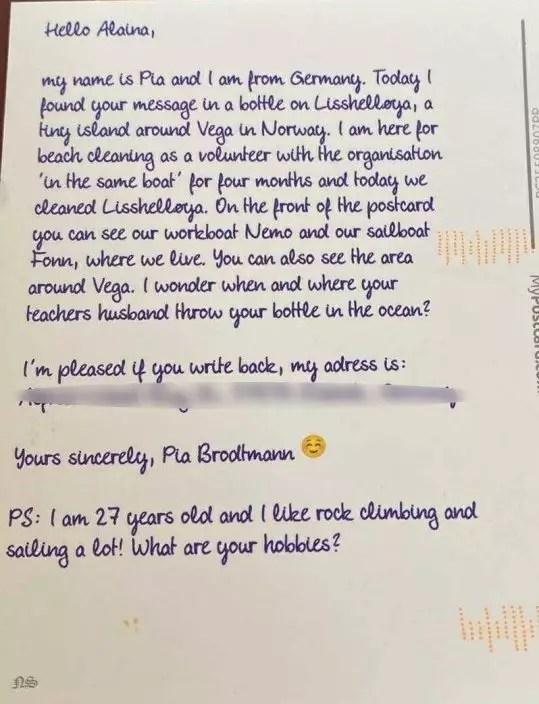 Hello Alaina,
my name is Pia and I am from Germany. Today I
found your message in a bottle on Lisshelløya, a
tiny island around Vega in Norway. I am here for
beach cleaning as a volunteer with the organisation
'in the same boat' for four months and today we
cleaned Lisshelløya. On the front of the postcard
you can see our workboat Nemo and our sailboat
Fonn, where we live. You can also see the area
around Vega. I wonder when and where your
teachers husband throw your bottle in the ocean?
I'm pleased if you write back, my adress is:
Yours sincerely, Pia Brodtmann ☺️
PS: I am 27 years old and I like rock climbing and
sailing a lot! What are your hobbies?
NS